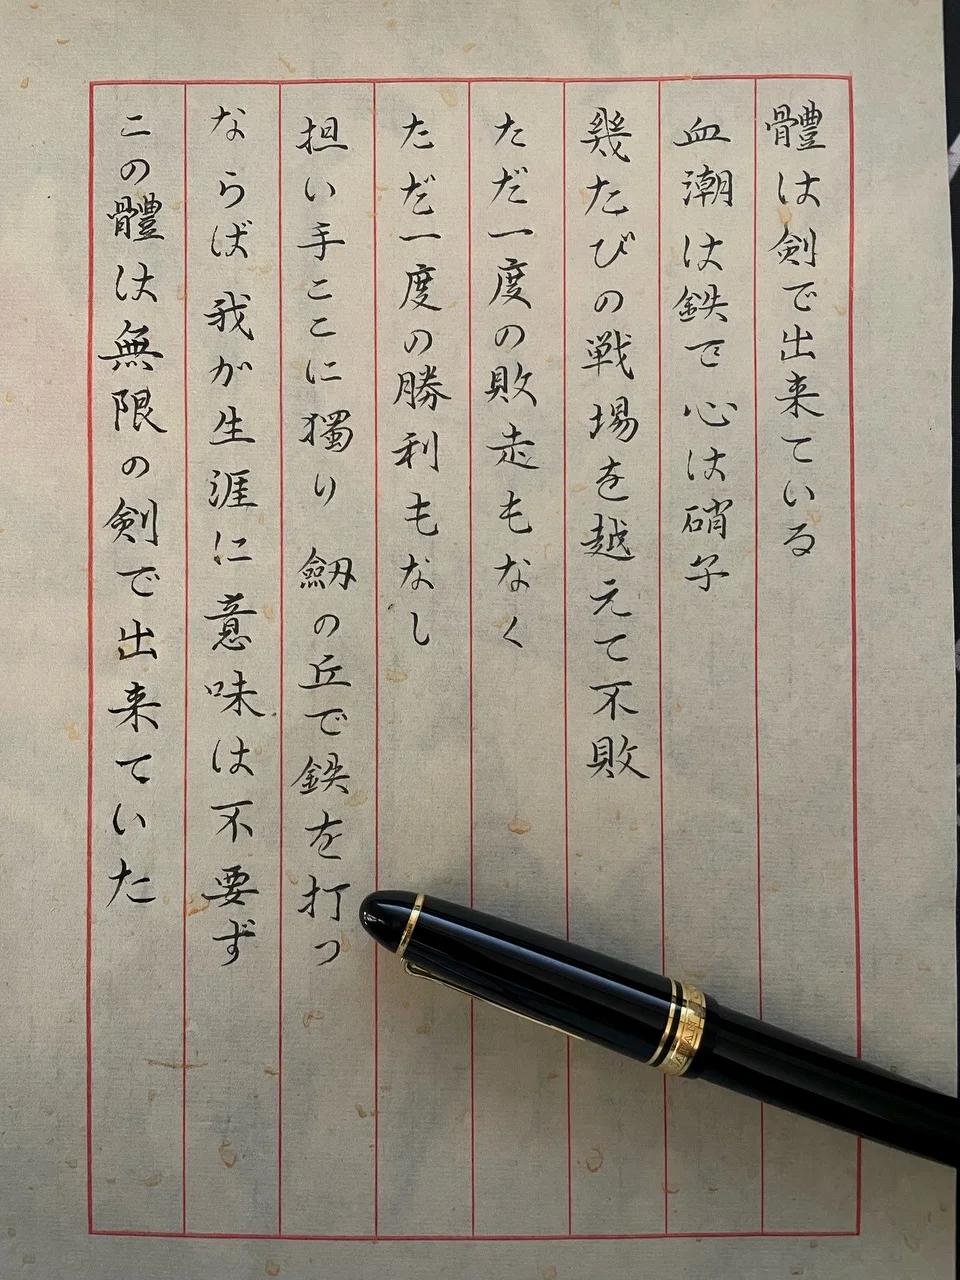 體は剣で出来ている
血潮は鉄で心は硝子
幾たびの戦場を越えて不敗
ただ一度の敗走もなく
ただ一度の勝利もなし
担い手ここに獨り 劔の丘で鉄を打つ
ならば我が生涯に意味は不要ず
この體は無限の剣で出来ていた
JAPAN